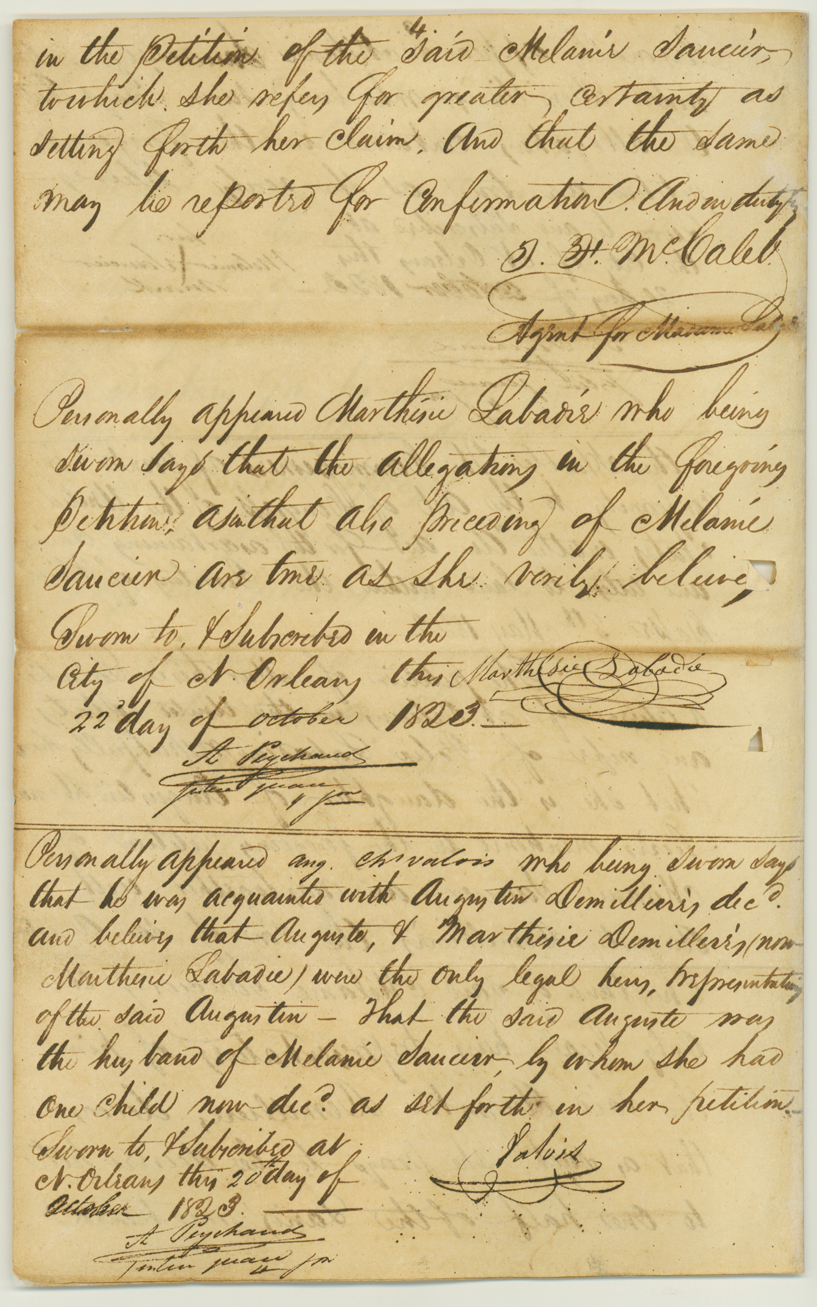 4
in the Petition of the said Melanie Saucier,
to which she refers for greater certainty as
setting forth her claim. And that the same
may be reported for Confirmation. And in duty
T. H. McCaleb
Agent for Madame
Personally appeared Marthésie Labadie who being
sworn says that the allegations in the foregoing
Petition, as in that also preceding of Melanie
Saucier are true as she verily beleive,
Sworn to, & Subscribed in the
City of N. Orleans this Marthésie Labadie
22d day of october 1823.
A Peychaud
juan
Personally appeared aug. chs valois who being sworn says
that he was acquainted with Augustin Demilliere's decd.
and beleives that Auguste, & Marthesie Demillere's (now
Marthesie Labadie) were the only legal heirs, & representatives
of the said Augustin – That the said Auguste was
the husband of Melanie Saucier, by whom she had
One Child now decd. as set forth in her petition.
Sworn to, & Subscribed at
N. Orleans this 20th day of Valois
october 1823.
A Peychaud
juan